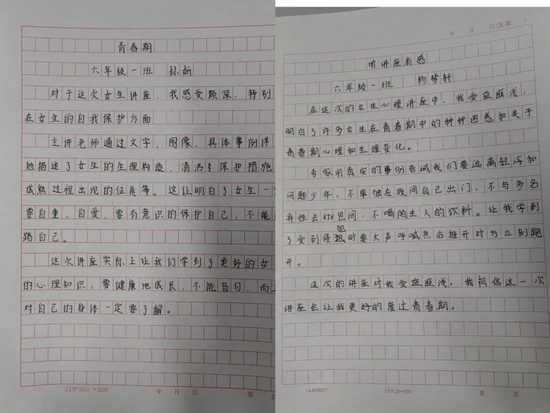 青春期
六年级一班 孙
对于这次女生讲座，我感受颇深，特别
在女生的自我保护方面
主讲老师通过文字、图像、具体事例详
地描述了女生的生理构造、清洁与保护措施
成熟过程出现的征兆等。这让明白了女生一
要自重，自爱，要有意识的保护自己，不能
踏自己。
这次讲座实际上让我们学到了更好的女
的心理知识，要健康地成长，不能盲目，而
对自己的身体一定要了解。
(15*20) =300 年 月 日 第
年 月 日(星期
听讲座有感
六年级一班 柯梦轩
在这次的女生心理讲座中，我受益匪浅，
明白了许多女生在青春期中的种种困惑和关于
青春期心理和生理变化。
专家用真实的事例告诫我们要远离轻浮和
问题少年，不要独在夜间自己出门，不与多名
异性去KTV包间，不喝陌生人的饮料。让我学到
了受到侵犯时要大声呼喊然后推开对方立刻跑
开。
这次的讲座对我受益匪浅，我相信这一次
讲座也让我更好的度过青春期。
15×20=300 第 页